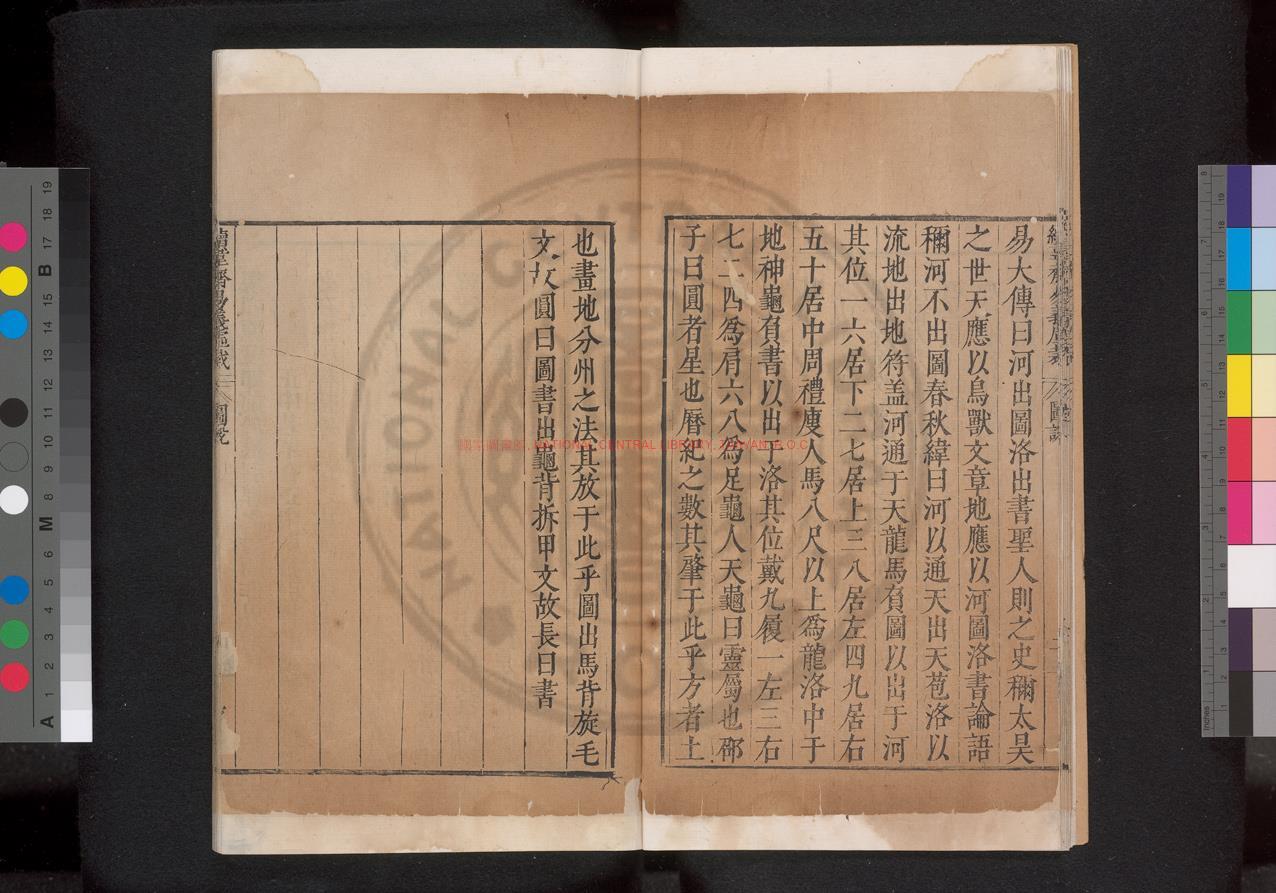 易大傳曰河出圖洛出書聖人則之史稱太昊
之世天應以鳥獸文章地應以河圖洛書論語
稱河不出圖春秋緯曰河以通天出天苞洛以
流地出地符盖河通于天龍馬負圖以出于河
其位一六居下二七居上三八居左四九居右
五十居中周禮廋人馬八尺以上爲龍洛中于
地神龜負書以出于洛其位戴九履一左三右
七二四爲肩六八爲足龜人天龜曰靈屬也邵
子曰圓者星也曆紀之數其肇于此乎方者土
也畫地分州之法其放于此乎圖出馬背旋毛
文故圓曰圖書出龜背拆甲文故長曰書
圖說
國家圖書館, NATIONAL CENTRAL LIBRARY, TAIWAN, R.O.C